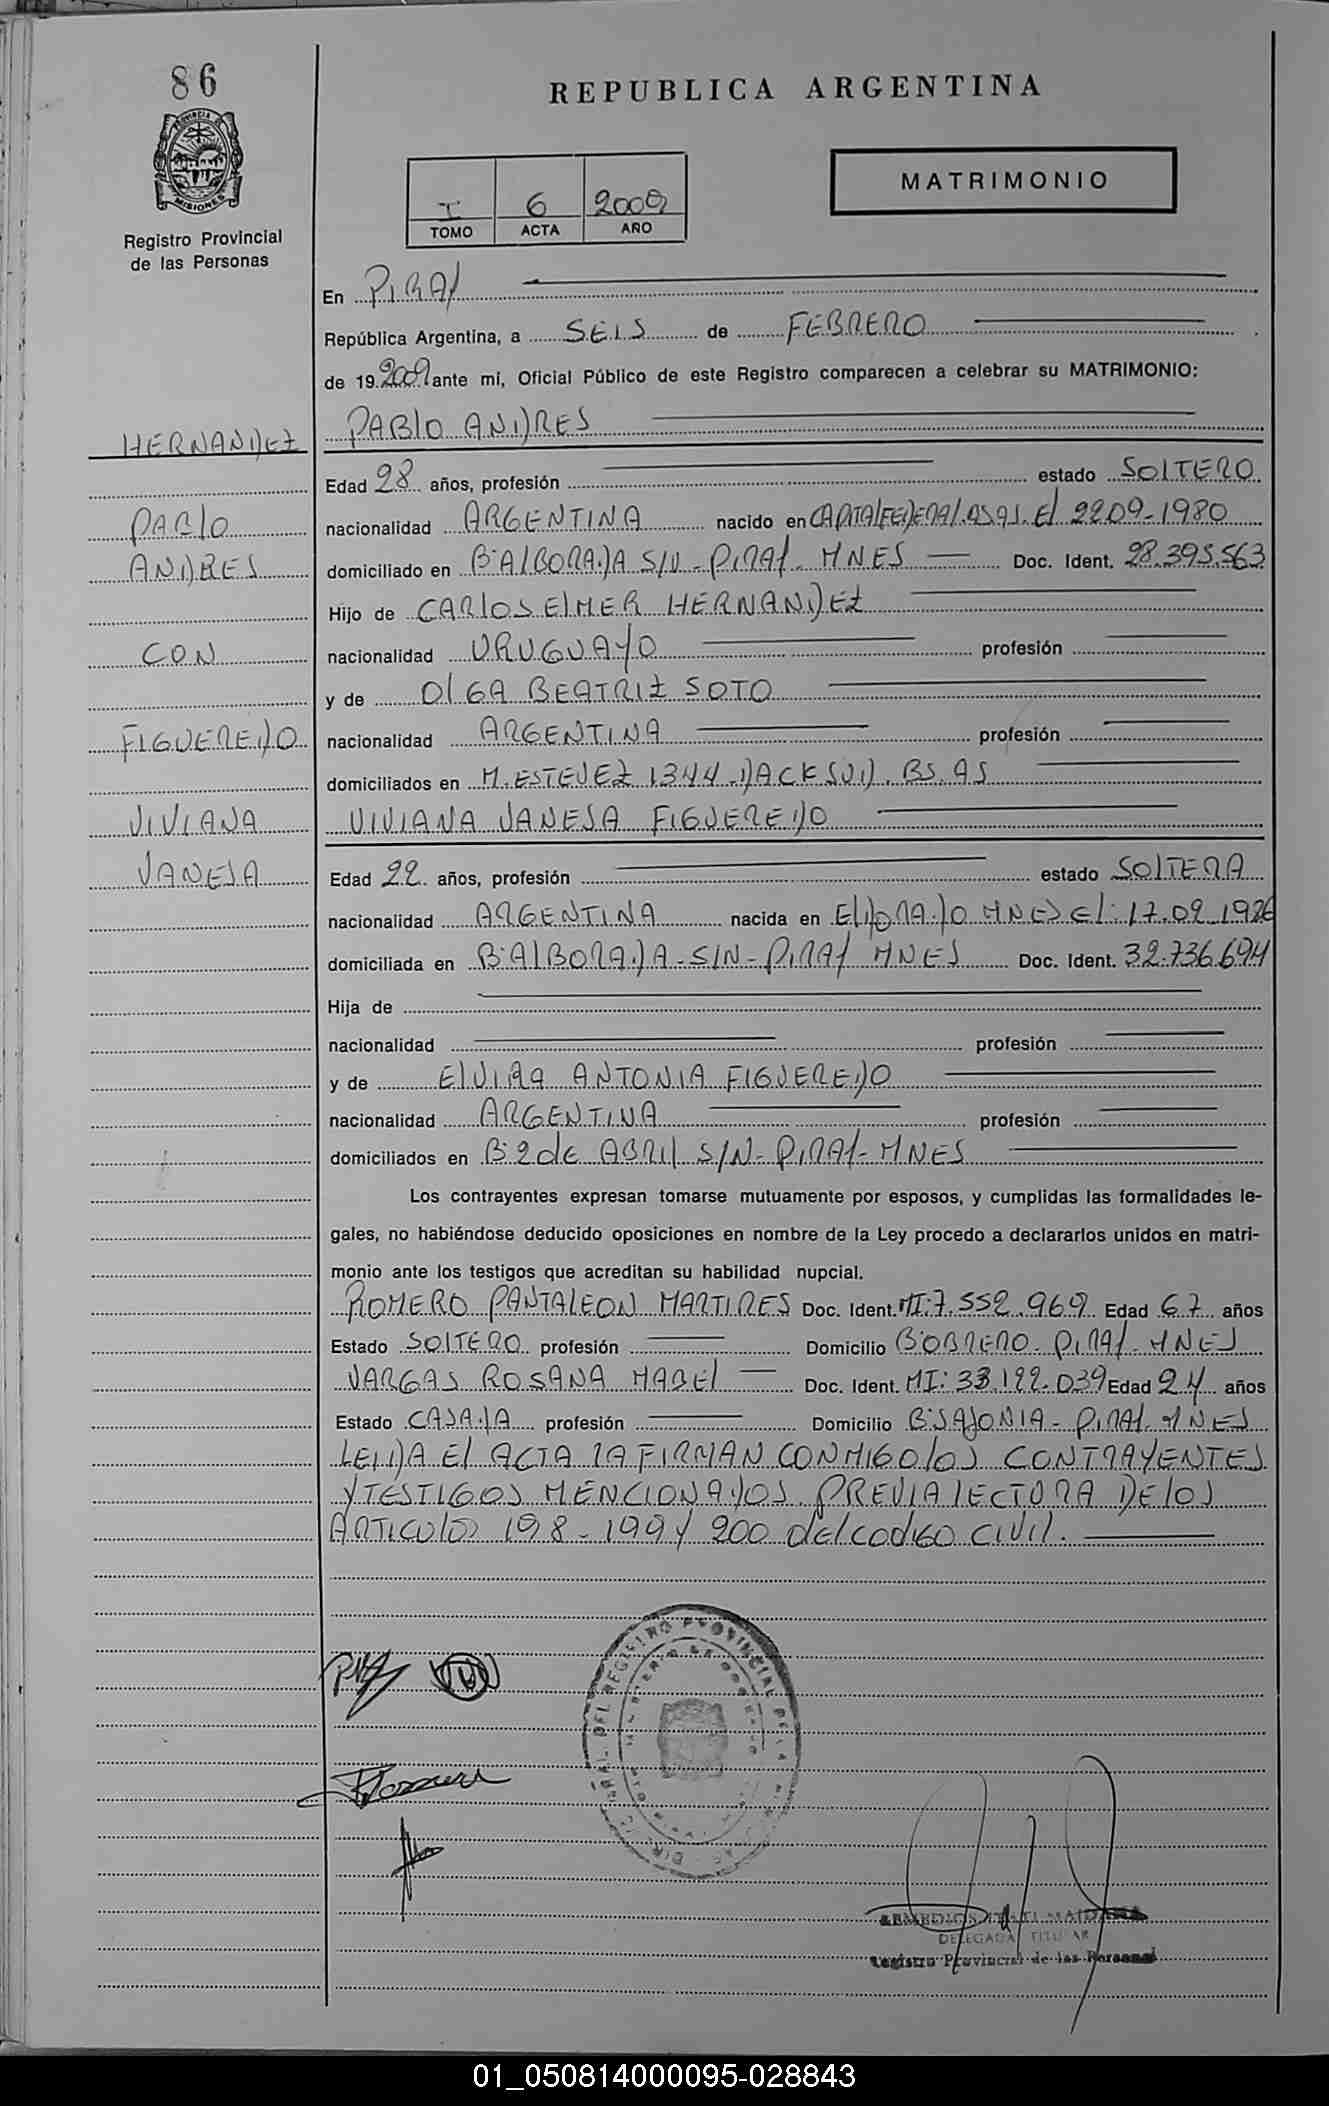 86
REPUBLICA ARGENTINA
PROVINCIA DE
MISIONES
Registro Provincial
de las Personas
I 6 2009
TOMO ACTA AÑO
MATRIMONIO
En PIRAY
República Argentina, a SEIS de FEBRERO
de 19 2009 ante mí, Oficial Público de este Registro comparecen a celebrar su MATRIMONIO:
HERNANDEZ PABLO ANDRES
Edad 28 años, profesión estado SOLTERO
PABLO nacionalidad ARGENTINA nacido en CAPITAL FEDERAL. BS AS. El 22 09-1980
ANDRES domiciliado en Bº ALBORADA S/N - PIRAY - MNES Doc. Ident. 28.395.563
Hijo de CARLOS ELMER HERNANDEZ
CON nacionalidad URUGUAYO profesión
y de OLGA BEATRIZ SOTO
FIGUEREDO nacionalidad ARGENTINA profesión
domiciliados en M. ESTEVEZ 1344 DACK SUD. BS. AS
VIVIANA VIVIANA VANESA FIGUEREDO
VANESA Edad 22 años, profesión estado SOLTERA
nacionalidad ARGENTINA nacida en ELDORADO MNES El: 17.02.1986
domiciliada en Bº ALBORADA - S/N - PIRAY MNES Doc. Ident. 32.736.694
Hija de
nacionalidad profesión
y de ELVIRA ANTONIA FIGUEREDO
nacionalidad ARGENTINA profesión
domiciliados en Bº 2 de ABRIL S/N - PIRAY - MNES
Los contrayentes expresan tomarse mutuamente por esposos, y cumplidas las formalidades le-
gales, no habiéndose deducido oposiciones en nombre de la Ley procedo a declararlos unidos en matri-
monio ante los testigos que acreditan su habilidad nupcial.
ROMERO PANTALEON MARTIRES Doc. Ident. MI: 7.552.969 Edad 67 años
Estado SOLTERO profesión Domicilio Bº OBRERO - PIRAY - MNES
VARGAS ROSANA MABEL Doc. Ident. MI: 33.122.039 Edad 24 años
Estado CASADA profesión Domicilio Bº SAJONIA - PIRAY - MNES
LEIDA El ACTA LA FIRMAN CONMIGO los CONTRAYENTES
Y TESTIGOS MENCIONADOS. PREVIA LECTURA DE LOS
ARTICULOS 198 - 199 Y 200 del CODIGO CIVIL.
DEL REGISTRO PROVINCIAL DE LA
MAIDANA
DELEGADA TITULAR
Registro Provincial de las Personas
01_050814000095-028843